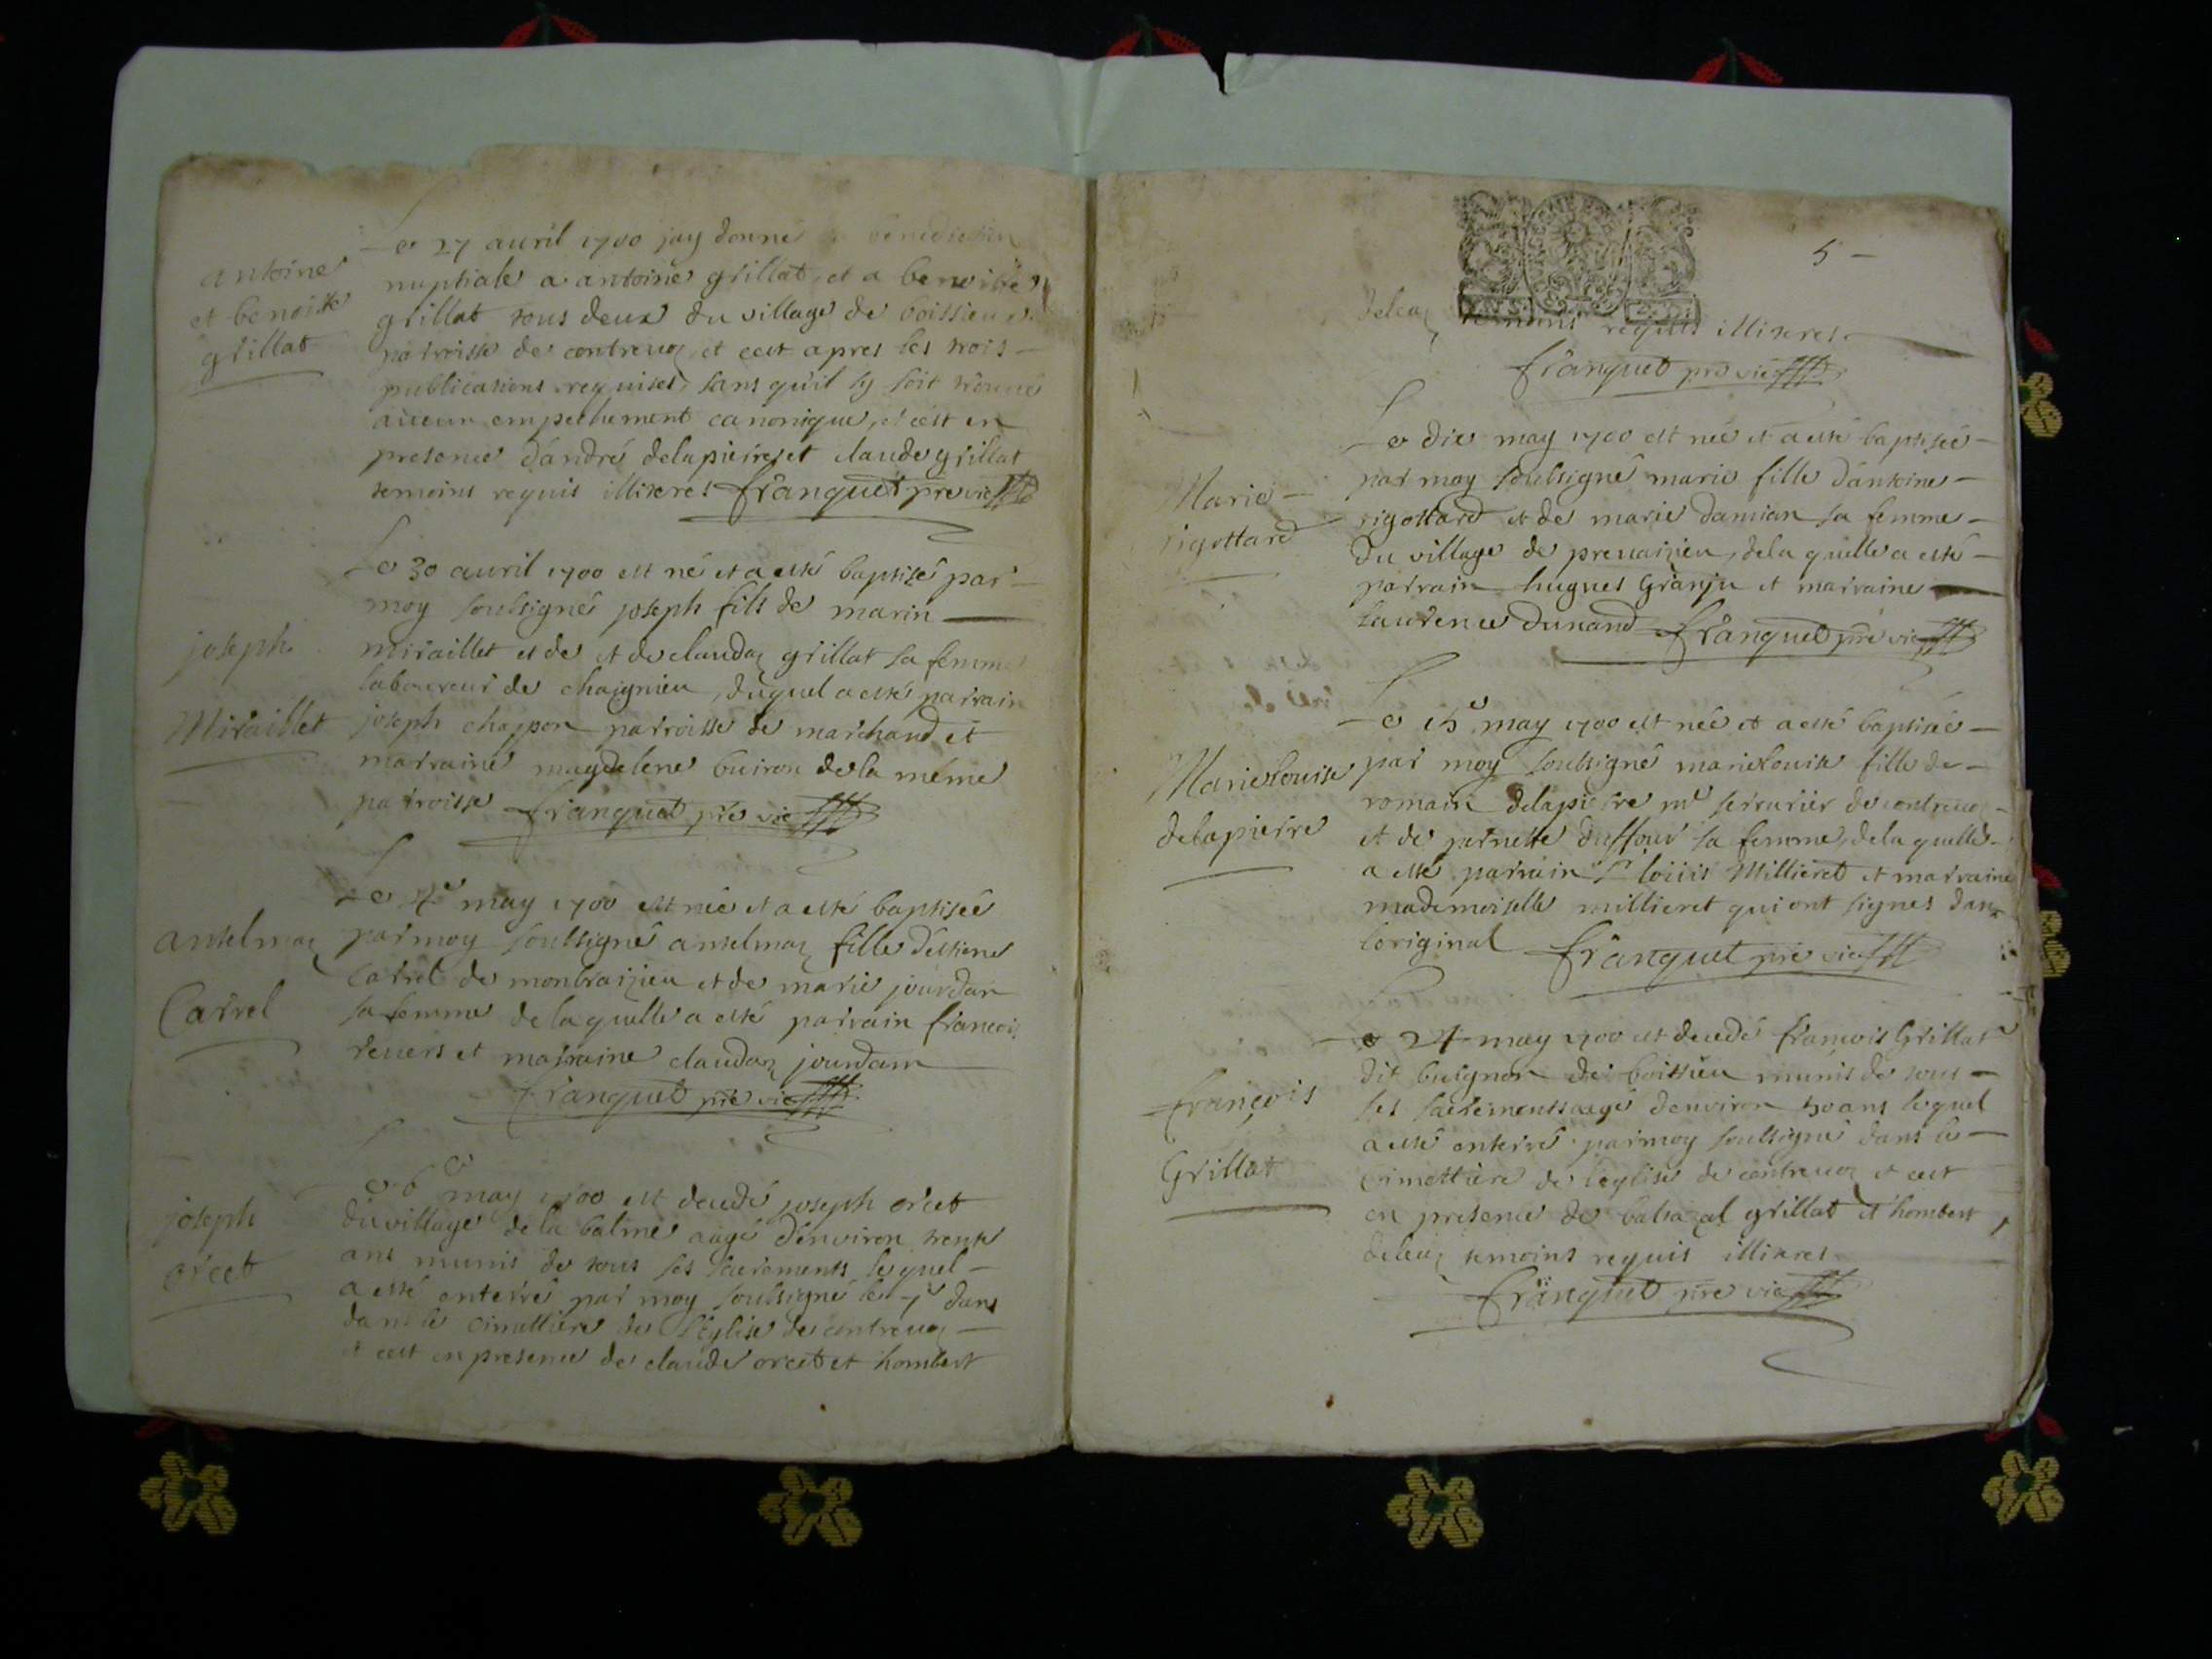 antoine
et benoiste
grillat
Le 27 auril 1700 jay donné la benediction
nuptiale a antoine grillat, et a benoiste
grillat tous deux du village de boissieu
parroisse de contreuoz et cest apres les trois
publications requises, sans qu'il sy soit trouué
aucun empechement canonique, et cest en
presence d'andré delapierre et claude grillat
temoins requis illiteres franquet pre vic
joseph
Miraillet
Le 30 auril 1700 est né et a esté baptisé par
moy soubsigné joseph fils de marin
miraillet et de et de claudaz grillat sa femme
laboureur de chaignieu, duquel a esté parrain
joseph chappon parroisse de marchand et
marraine magdelene buiron de la méme
parroisse franquet pre vic
anselmaz
Carrel
Le 4e may 1700 est née et a esté baptisée
par moy soubsigné anselmaz fille d'estiene
Carrel de montbraizieu et de marie jourdan
sa femme de laquelle a esté parrain francois
reuers et marraine claudaz jourdam
franquet pre vic
joseph
orcet
Le 6e may 1700 est decedé joseph orcet
du village de la balme aagé d'enuiron trente
ans munis de tous ses sacrements lequel
a esté enterré par moy soubsigné le 7e dans
dans le cimettiere de l'eglise de contreuoz
et cest en presence de claude orcet et hombert
5
deleaz temoins requis illiteres
franquet pre vic
Marie
rigottard
Le dix may 1700 est née et a esté baptisée
par moy soubsigné marie fille d'antoine
rigottard et de marie damian sa femme
du village de preuaizieu, de la quelle a esté
parrain hugues Granju et marraine
laurence Dunand franquet pre vic
Marielouise
delapierre
Le 15e may 1700 est née et a esté baptisée
par moy soubsigné marielouise fille de
romain delapierre me serrurier de contreuoz
et de pernette duffour sa femme, de la quelle
a esté parrain sr loüis Millieret et marraine
mademoiselle millieret qui ont signés dans
l'original franquet pre vic
françois
Grillat
Le 24 may 1700 est decedé francois Grillat
dit buignon de boissieu munis de tous
ses sacrements aagé d'enuiron 50 ans lequel
a esté enterré par moy soubsigné dans le
cimettiere de l'eglise de contreuoz et cest
en presence de baltazal grillat et hombert
deleaz temoins requis illiteres
franquet pre vic